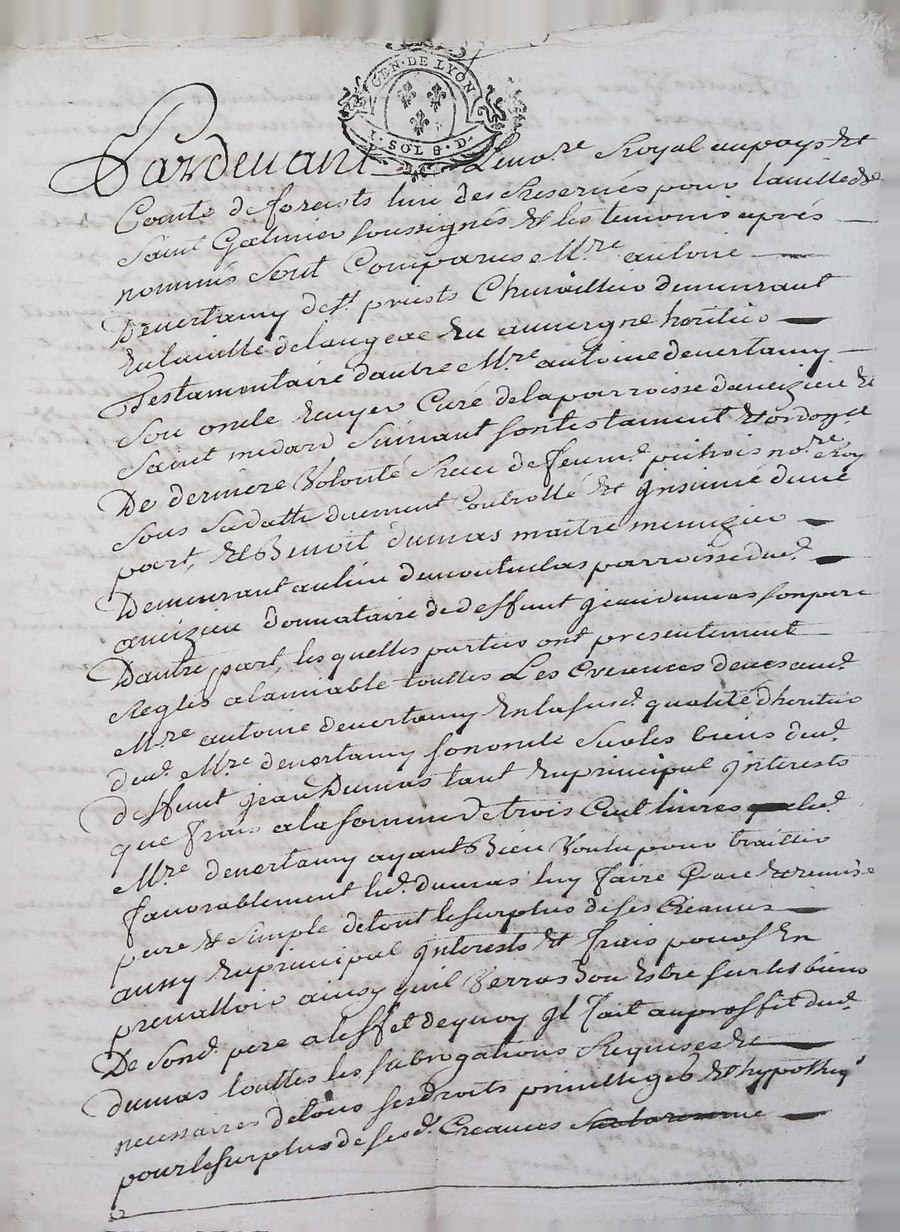 GEN·DE LYON
1. SOL 8. D.
Pardevant Le no.re Royal au pays et
Comté de forests lun des Reservés pour la ville de
Saint Galmier soussignés et les temoins aprés
nommés sont Comparus M.re antoine
Devertamy de s.t priests Chevallier demeurant
En la ville de langeac En auvergne heritier
Testamentaire dautre M.re antoine devertamy
Son oncle Curé de la parroisse daveizieu et
Saint medard, suivant son testament et ordon.ce
De derniere Volonté Receu de feu m.e no.re Roy
sous sa datte duement Controllé et Insinué dune
part, Et Benoit dumas maitre menuzier
Demeurant au lieu de parroisse dud.
aveizieu donnataire de deffunt jean dumas son pere
Dautre part, les quelles parties ont presentement
Reglés a lamiable touttes Les Creances deues aud.
M.re antoine devertamy En la susd. qualité dheritier
dud. M.re devertamy son oncle sur les biens dud.
deffunt jean Dumas tant En principal Interests
que frais a la somme de trois Cent livres led.
M.re devertamy ayant Bien Voulu pour traitter
favorablement led. dumas luy faire Grace et remise
pure et simple de tout le surplus de ses Creances
aussy En principal Interests et frais pour sEn
prevalloir ainsy quil Verras bon Estre sur les biens
De sond. pere a leffet dequoy Il fait au proffit dud.
dumas touttes les subrogations Requises et
necessaires de tous ses droits privilleges et hypotheq
pour le surplus de sesd. Creances